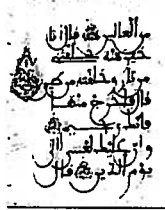 من العالين قال انا
خير منه خلقتنى
من نار وخلقته من طين
قال فاخرج منها
فانك رجيم
وان عليك لعنتى الى
يوم الدين قال